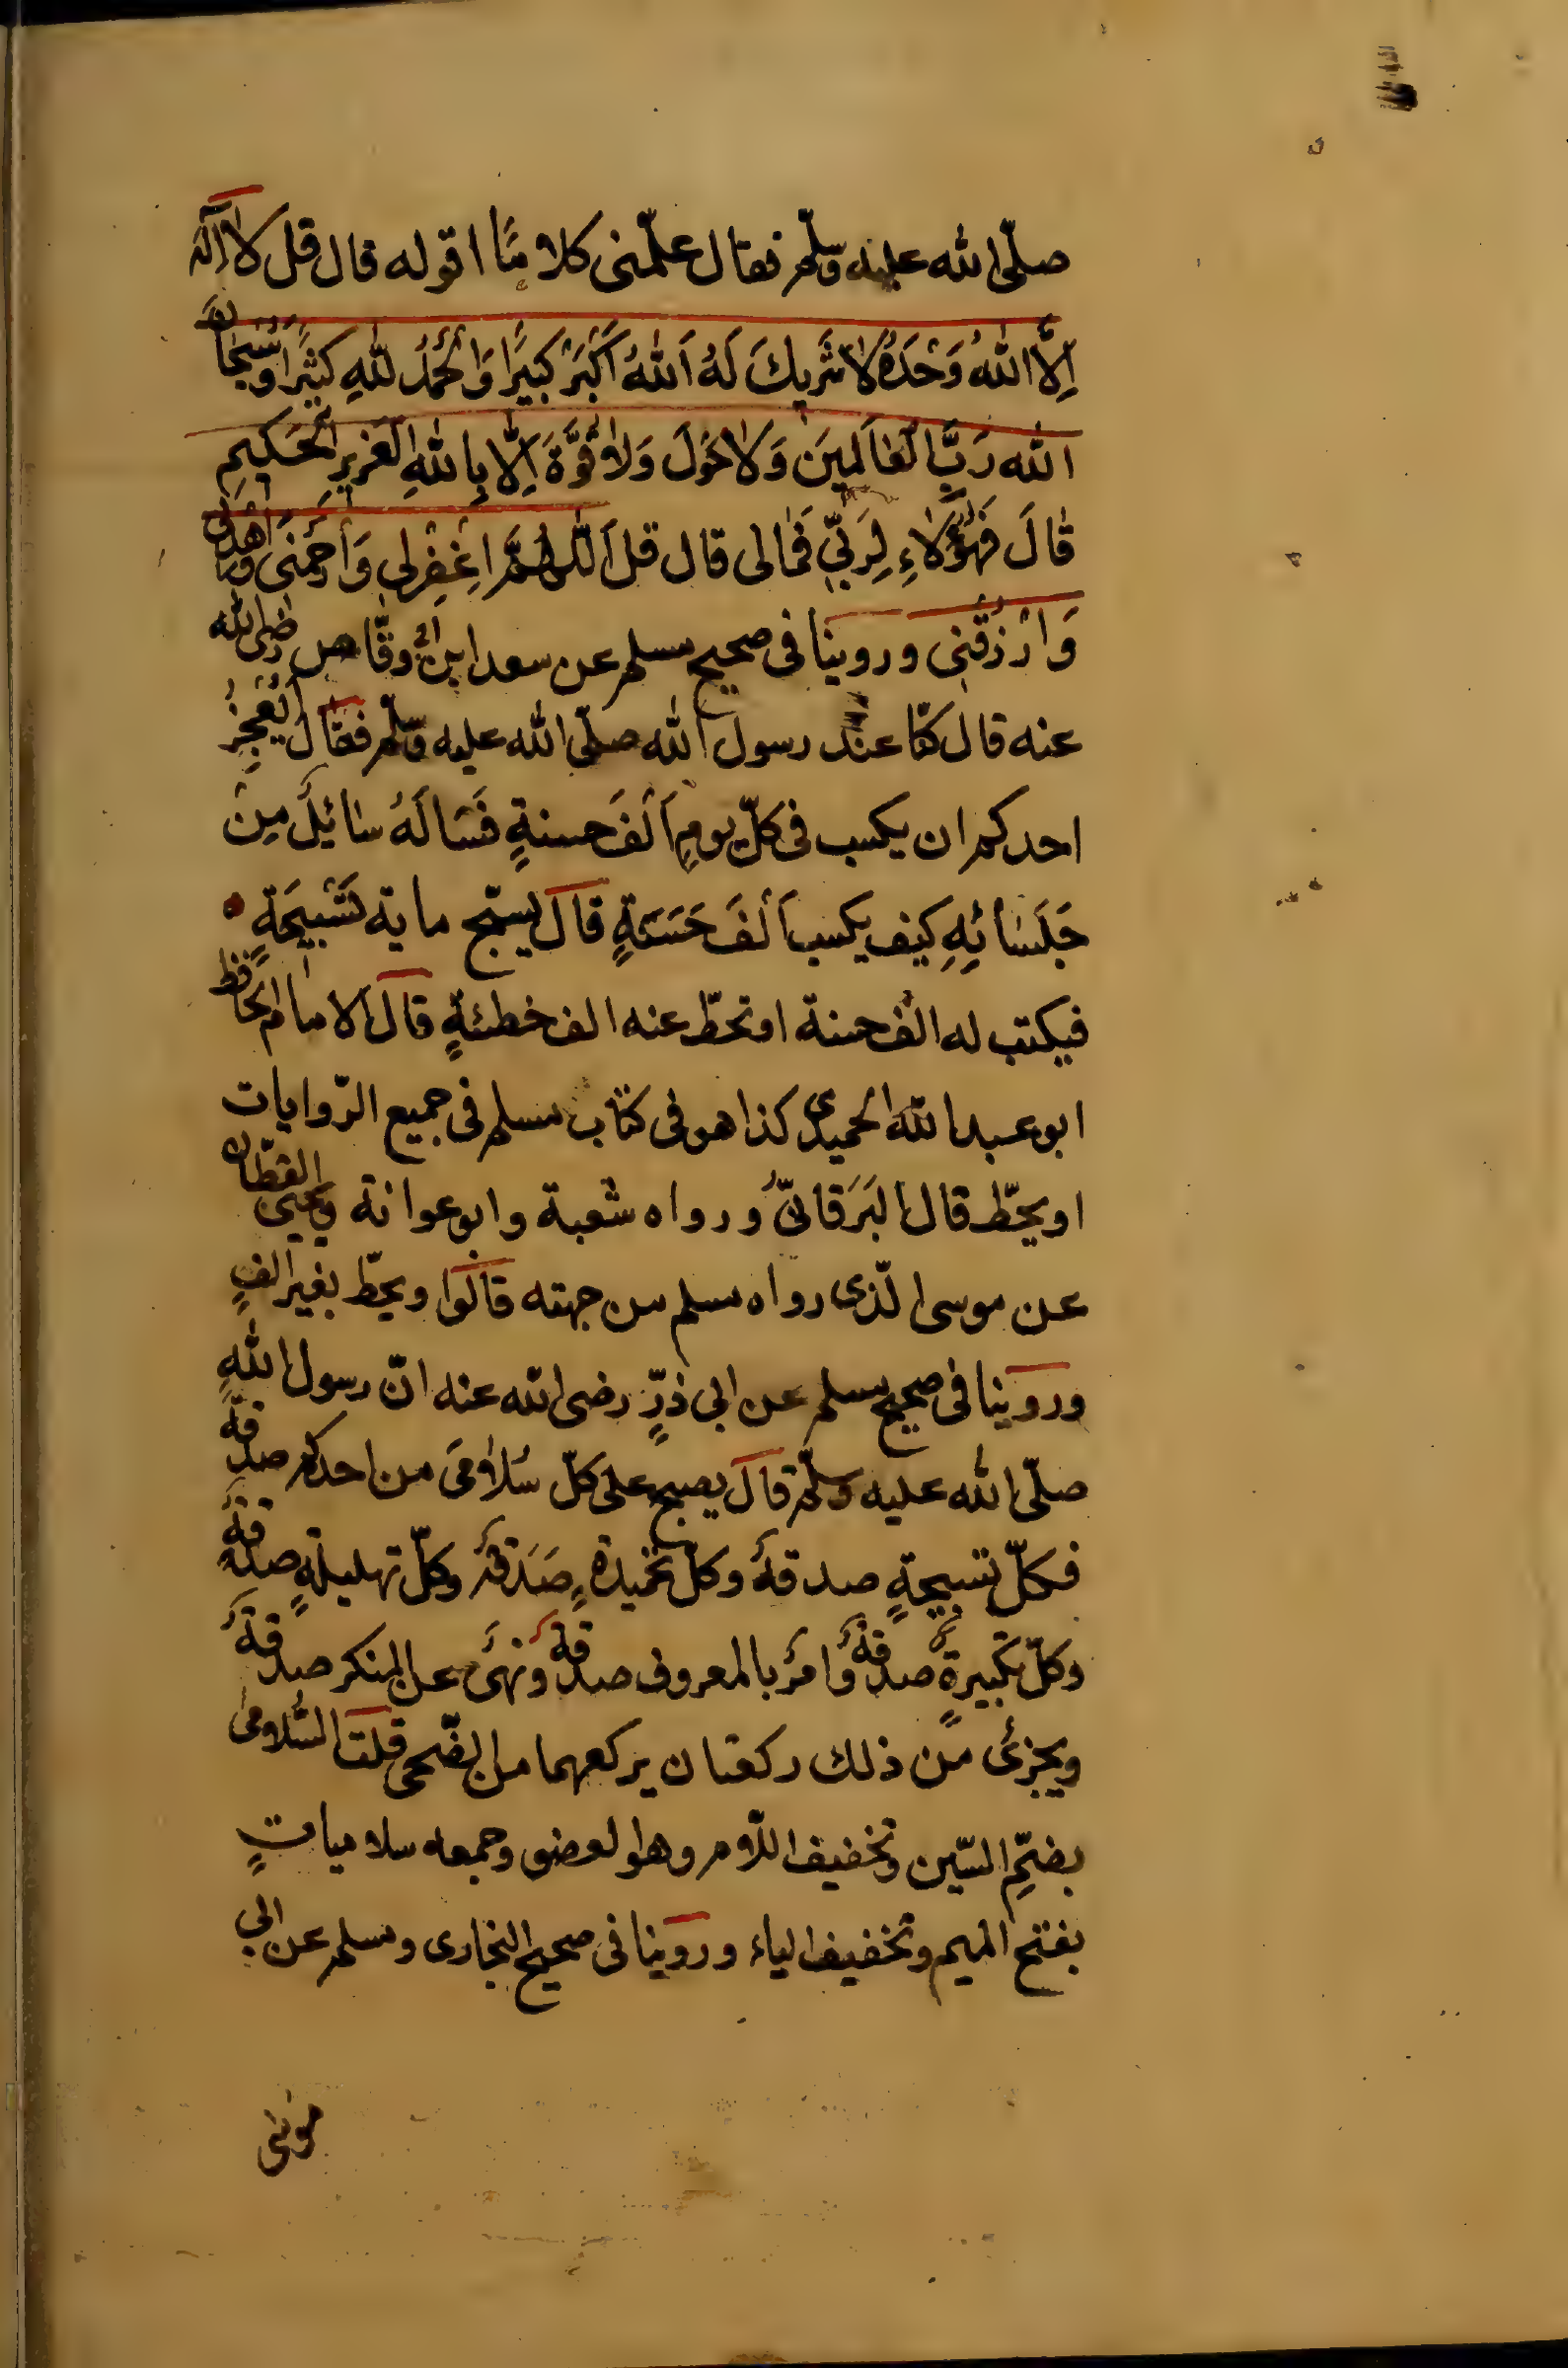 صلّى الله عليه وسلّم فقال علّمنى كلامًا اقوله قال قل لا اله
اِلَّا اللهُ وَحْدَهُ لَا شَرِيكَ لَهُ اَللهُ اَكْبَرُ كَبِيرًا وَالْحَمْدُ لِلّٰهِ كَثِيرًا وَسُبْحَانَ
الله رَبِّ الْعَالَمِينَ وَلَا حَوْلَ وَلَا قُوَّةَ اِلَّا بِاللهِ الْعَزِيزِ الْحَكِيمِ
قَالَ فَهٰؤُلَاءِ لِرَبِّي فَمَالى قال قل اَللّٰهُمَّ اغْفِرْلِي وَارْحَمْنِى وَاهْدِنِى
وَارْزُقْنِى وروينا فى صحيح مسلم عن سعد ابن ابى وقّاص رضى الله
عنه قال كنّا عند رسول الله صلّى الله عليه وسلّم فقال اَيَعْجِزُ
احدكم ان يكسب فى كلّ يومٍ اَلْفَ حسنةٍ فَسَالَهُ سَائِلٌ مِنْ
جُلَسَائِهِ كيف يكسب اَلْفَ حَسَنَةٍ قال يسبّح ماية تَسْبِيحَةٍ
فيكتب له الف حسنة او تحطّ عنه الف خطئةٍ قال الامام الحافظ
ابو عبد الله الحميدى كذا هو فى كتاب مسلم فى جميع الرّوايات
او يحطّ قال البَرَقانىُّ ورواه شعبة وابو عوانة ويحيى القطّان
عن موسى الّذى رواه مسلم من جهته قالوا ويحطّ بغير الفٍ
وروينا فى صحيح مسلم عن ابى ذرٍّ رضى الله عنه انّ رسول اللهِ
صلّى الله عليه وسلّم قال يصبح على كلّ سُلَامَى من احدكم صدقةٌ
فكلّ تسبيحةٍ صدقةٌ وكلّ تحميدةٍ صَدَقةٌ وكلّ تهليلةٍ صدقةٌ
وكلّ تكبيرةٍ صدقةٌ وامرٌ بالمعروف صدقةٌ ونهىٌ عن المنكر صدقةٌ
ويجزئ من ذلك ركعتان يركعهما من الضّحى قلت السُّلامى
بضمِّ السّين وتخفيف اللّام وهو العضو وجمعه سلامياتٍ
بفتح الميم وتخفيف الياء وروينا فى صحيح البخارى ومسلم عن ابى
موسى